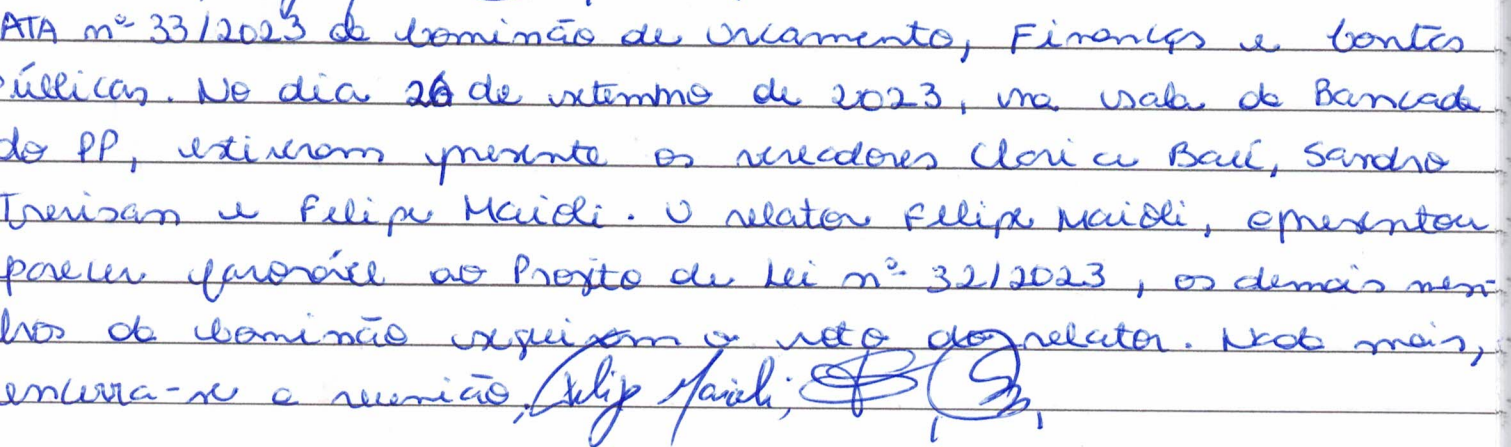 ATA nº 33/2023 da Comissão de Orçamento, Finanças e Contas
Públicas. No dia 26 de setembro de 2023, na sala da Bancada
do PP, estiveram presente os vereadores Clarice Baú, Sandro
Trevisan e Felipe Maioli. O relator Felipe Maioli, apresentou
parecer favorável ao Projeto de Lei nº 32/2023, os demais mem-
bros da Comissão seguiram o voto do relator. Nada mais,
encerra-se a reunião, Felipe Maioli;